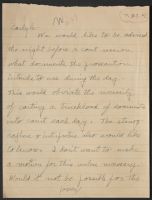 Carlyle:
We would like to be advised
the night before a court session
what documents the prosecution
intends to use during the day.
This would obviate the necessity
of carting a truckload of documents
into court each day. The
also would like
to know. I don't want to make
a motion for this unless necessary.
Would it not be possible for the